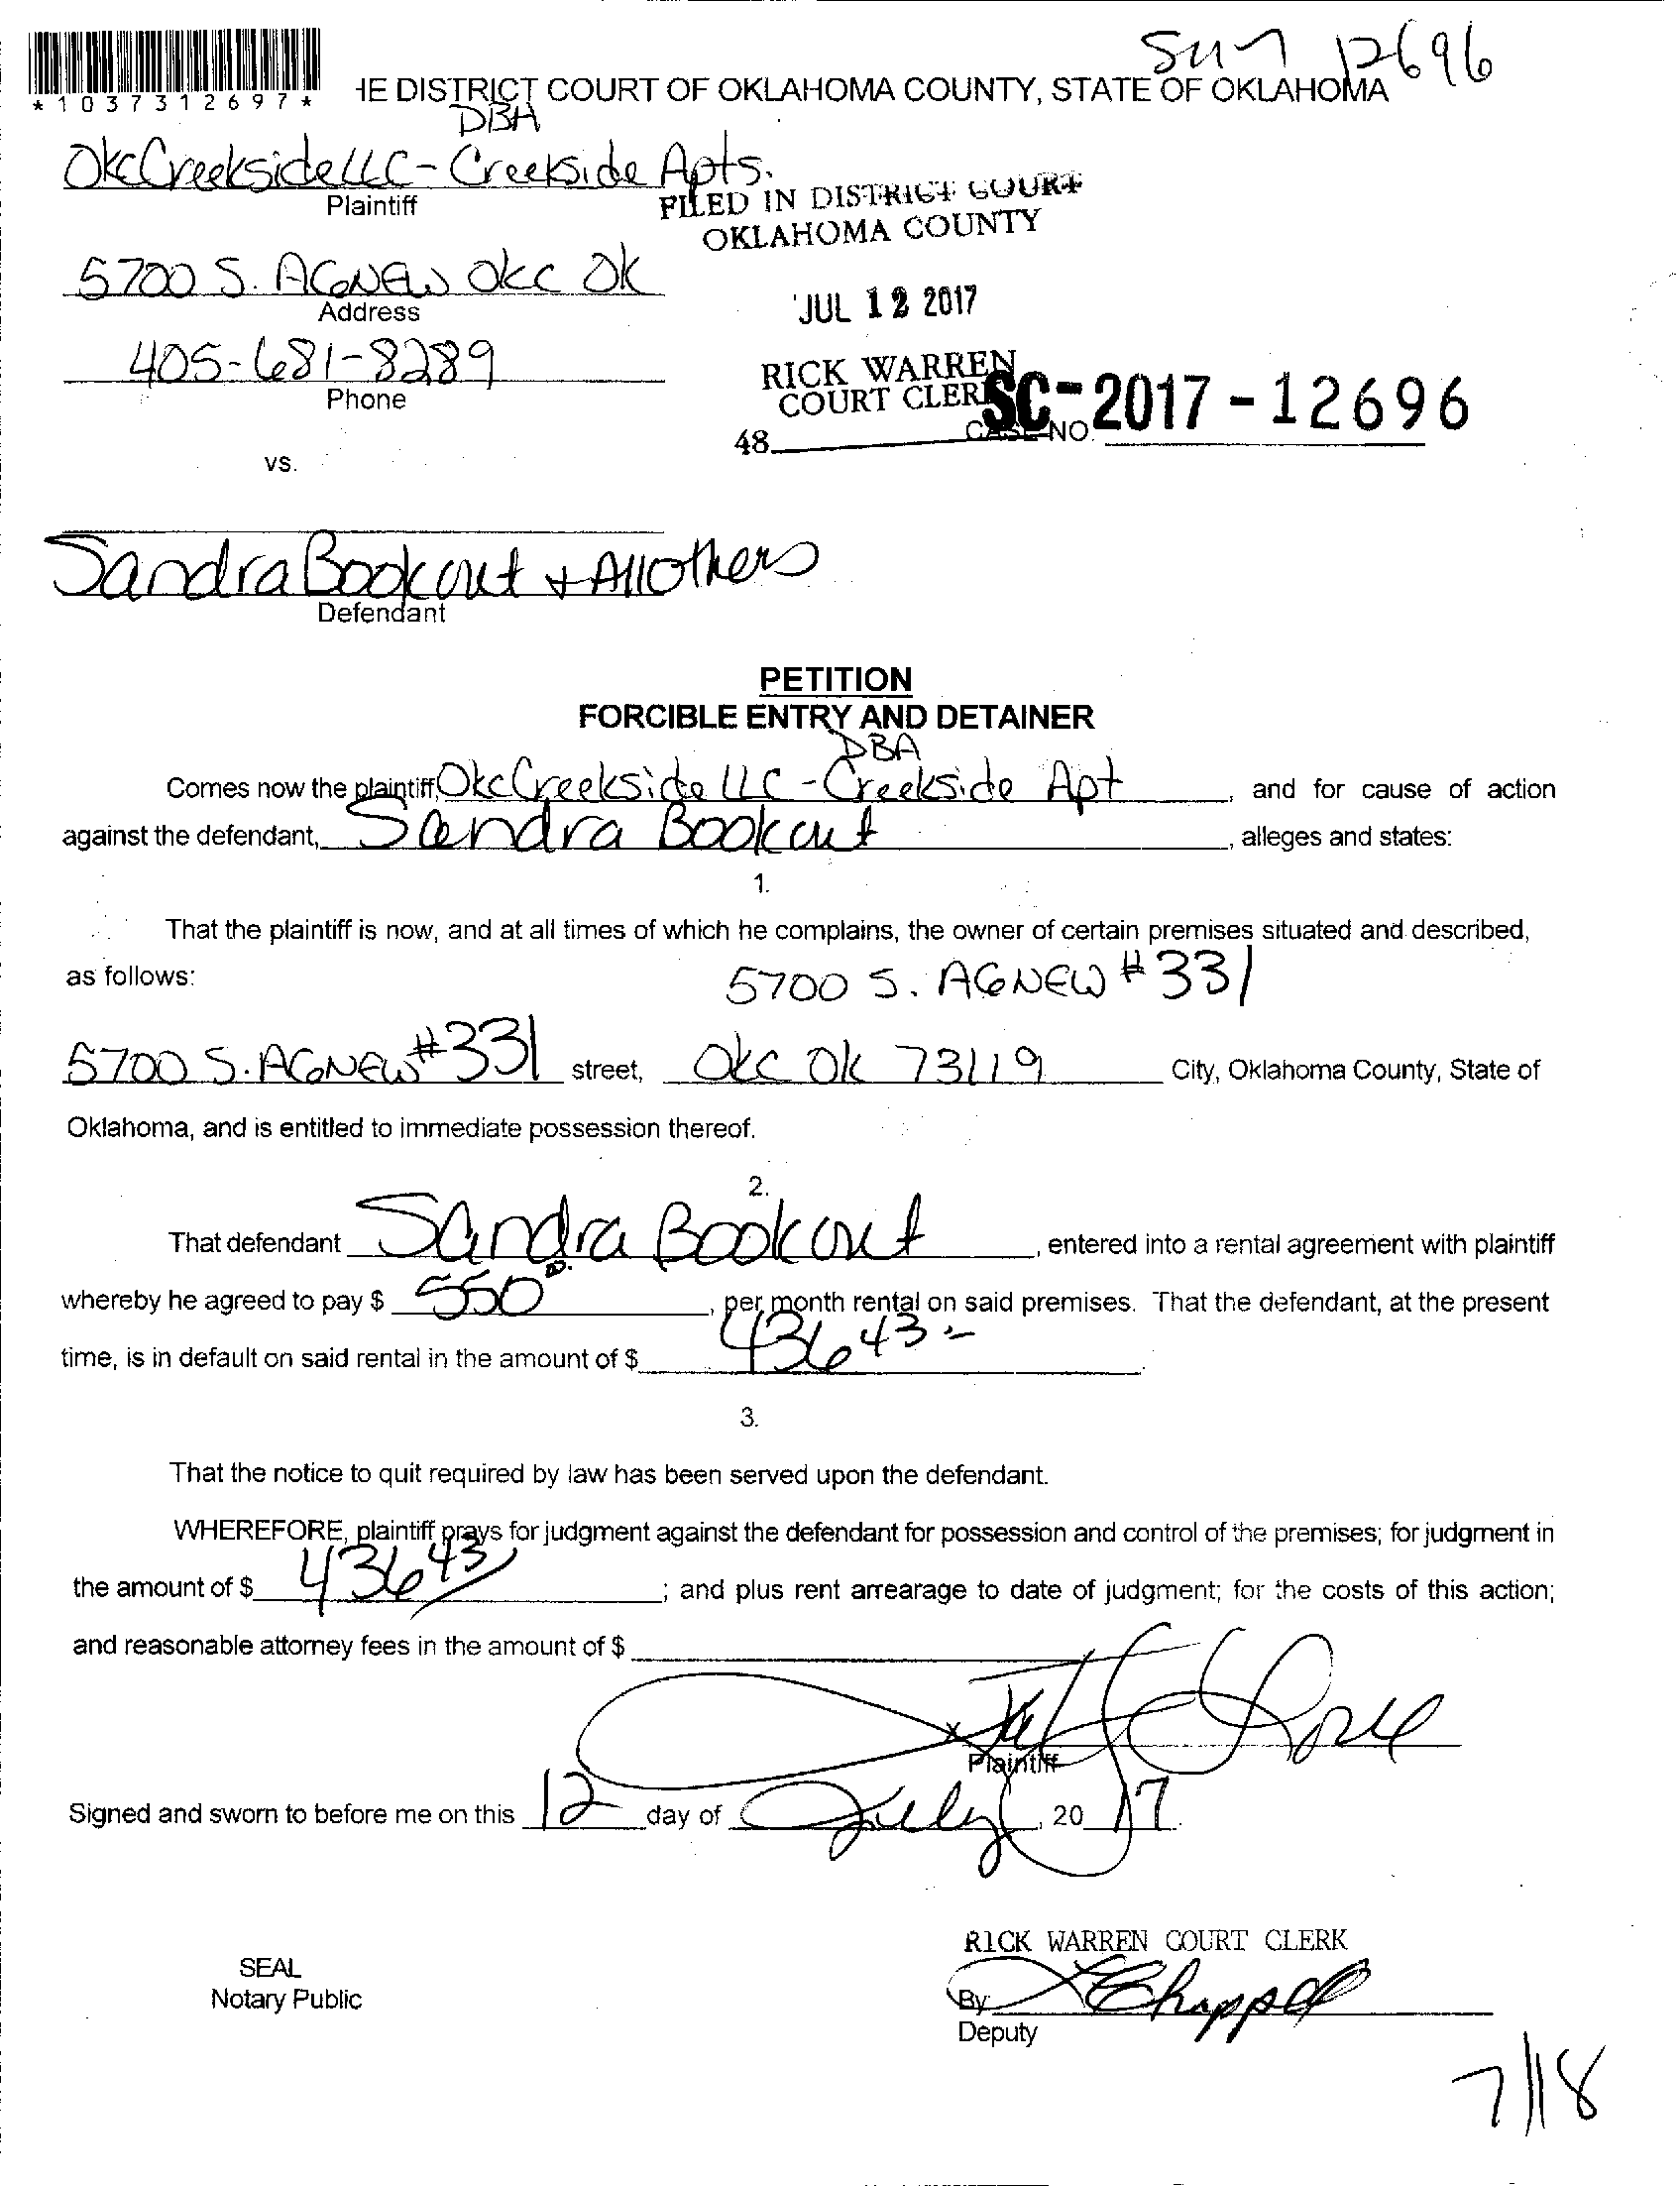 12696
*1037312697*
HE DISTRICT COURT OF OKLAHOMA COUNTY, STATE OF OKLAHOMA
DBA
OkcCreekside LLC - Creekside Apts.
Plaintiff
FILED IN DISTRICT COURT
OKLAHOMA COUNTY
5700 S. AGNEW Okc Ok
Address
JUL 12 2017
405-681-8289
Phone
RICK WARREN
COURT CLERK
SC-2017-12696
CASE NO.
48
vs.
Sandra Bookout + All Others
Defendant
PETITION
FORCIBLE ENTRY AND DETAINER
DBA
Comes now the plaintiff, OkcCreekside LLC - Creekside Apt, and for cause of action
against the defendant, Sandra Bookout, alleges and states:
1.
That the plaintiff is now, and at all times of which he complains, the owner of certain premises situated and described,
as follows: 5700 S. AGNEW #331
5700 S. AGNEW #331 street, Okc Ok 73119 City, Oklahoma County, State of
Oklahoma, and is entitled to immediate possession thereof.
2.
That defendant Sandra Bookout, entered into a rental agreement with plaintiff
whereby he agreed to pay $ 550 00, per month rental on said premises. That the defendant, at the present
time, is in default on said rental in the amount of $ 436 43.
3.
That the notice to quit required by law has been served upon the defendant.
WHEREFORE, plaintiff prays for judgment against the defendant for possession and control of the premises; for judgment in
the amount of $ 436 43; and plus rent arrearage to date of judgment; for the costs of this action;
and reasonable attorney fees in the amount of $
Plaintiff
Signed and sworn to before me on this 12 day of July, 20 17.
RICK WARREN COURT CLERK
SEAL
Notary Public
By: Chappell
Deputy
7/18